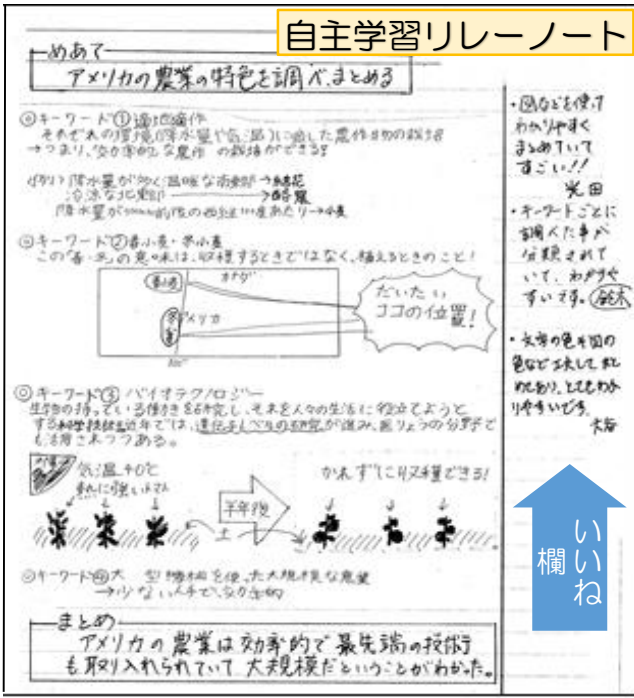 自主学習リレーノート
めあて
アメリカの農業の特色を調べ、まとめる
◎キーワード① 適地適作
それぞれの環境(降水量や気温)に適した農作物の栽培
→つまり、効率的な農作の栽培ができる
降水量が多く温暖な南部→綿花
冷涼な北東部→酪農
降水量が
◎キーワード② 春小麦・冬小麦
この「春・冬」の意味は、収穫するときではなく、植えるときのこと!
春小麦
カナダ
冬小麦
アメリカ
だいたい
ココの位置!
◎キーワード③ バイオテクノロジー
生物の持っている働きを研究し、それを人々の生活に役立てようと
する科学技術 近年では、遺伝子レベルの研究が進み、医りょうの分野で
も活用されつつある。
気温40℃
熱に強いトマト
半年後
土
かれずに収穫できる!
◎キーワード④ 大型機械を使った大規模な農業
→少ない人手で、効率的
まとめ
アメリカの農業は効率的で最先端の技術
も取り入れられていて大規模だということがわかった。
・図などを使って
わかりやすく
まとめていて
すごい!!
・キーワードごとに
調べた事が
分類されて
いて、わかりや
すいです。鈴木
・文字の色や図の
色など工夫してまと
めており、とてもわか
りやすいです
いいね
欄